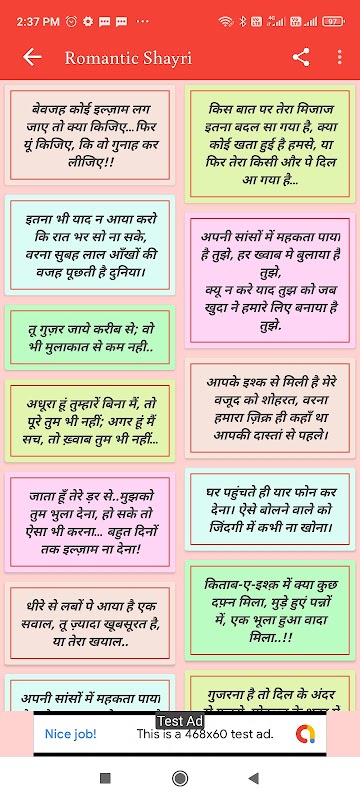 2:37 PM
97
Romantic Shayri
बेवजह कोई इल्ज़ाम लग
जाए तो क्या किजिए...फिर
यूं किजिए, कि वो गुनाह कर
लीजिए!!
इतना भी याद न आया करो
कि रात भर सो ना सके,
वरना सुबह लाल आँखों की
वजह पूछती है दुनिया।
तू गुज़र जाये करीब से; वो
भी मुलाकात से कम नही..
अधूरा हूं तुम्हारें बिना मैं, तो
पूरे तुम भी नहीं; अगर हूं मैं
सच, तो ख़्वाब तुम भी नहीं...
जाता हूँ तेरे ड़र से..मुझको
तुम भुला देना, हो सके तो
ऐसा भी करना... बहुत दिनों
तक इल्ज़ाम ना देना!
धीरे से लबों पे आया है एक
सवाल, तू ज़्यादा खूबसूरत है,
या तेरा खयाल..
अपनी सांसों में महकता पाया
किस बात पर तेरा मिजाज
इतना बदल सा गया है, क्या
कोई खता हुई है हमसे, या
फिर तेरा किसी और पे दिल
आ गया है...
अपनी सांसों में महकता पाया
है तुझे, हर ख्वाब मे बुलाया है
तुझे,
क्यू न करे याद तुझ को जब
खुदा ने हमारे लिए बनाया है
तुझे.
आपके इश्क से मिली है मेरे
वजूद को शोहरत, वरना
हमारा ज़िक्र ही कहाँ था
आपकी दास्तां से पहले।
घर पहुंचते ही यार फोन कर
देना। ऐसे बोलने वाले को
जिंदगी में कभी ना खोना।
किताब-ए-इश्क़ में क्या कुछ
दफ़्न मिला, मुड़े हुएं पन्नों
में, एक भूला हुआ वादा
मिला..!!
गुजरना है तो दिल के अंदर
Test Ad
Nice job!
This is a 468x60 test ad.